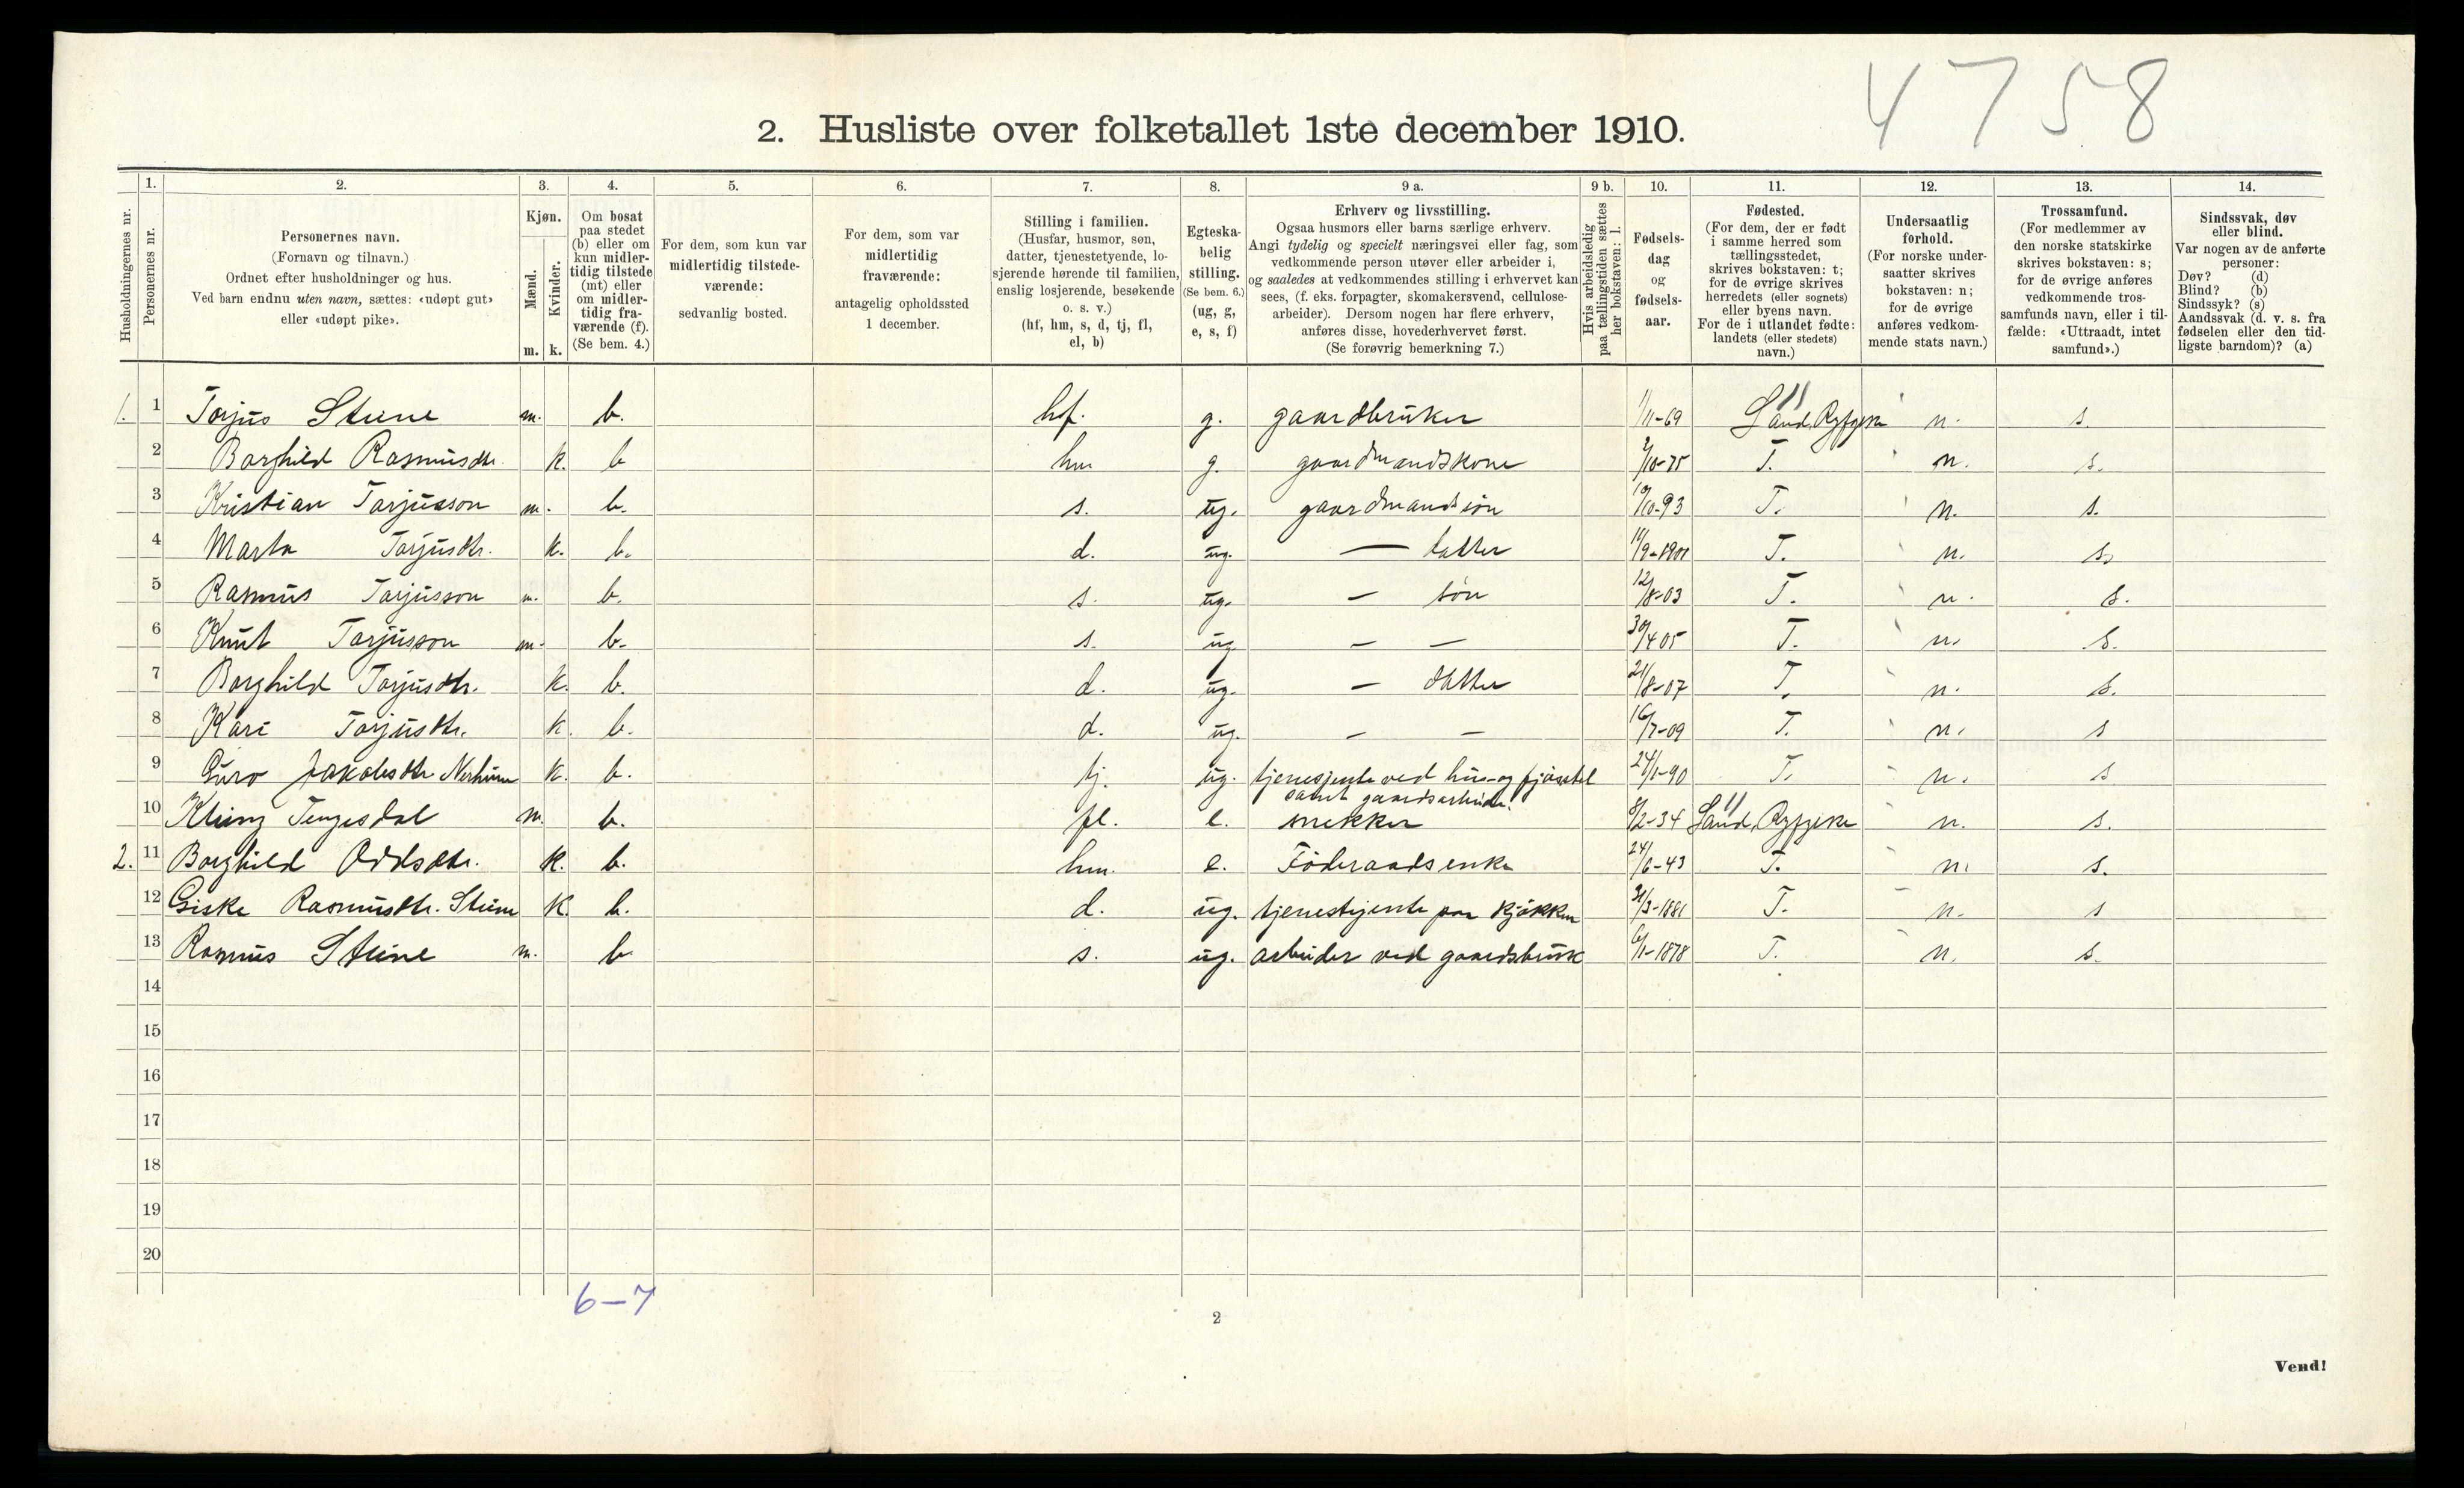 4758
2. Husliste over folketallet 1ste december 1910.
Husholdningernes nr.
1. Personernes nr.
2. Personernes navn. (Fornavn og tilnavn.) Ordnet efter husholdninger og hus. Ved barn endnu uten navn, sættes: «udøpt gut» eller «udøpt pike».
3. Kjøn. Mænd. m. Kvinder. k.
4. Om bosat paa stedet (b) eller om kun midlertidig tilstede (mt) eller om midlertidig fraværende (f). (Se bem. 4.)
5. For dem, som kun var midlertidig tilstedeværende: sedvanlig bosted.
6. For dem, som var midlertidig fraværende: antagelig opholdssted 1 december.
7. Stilling i familien. (Husfar, husmor, søn, datter, tjenestetyende, losjerende hørende til familien, enslig losjerende, besøkende o. s. v.) (hf, hm, s, d, tj, fl, el, b)
8. Egteskabelig stilling. (Se bem. 6.) (ug, g, e, s, f)
9 a. Erhverv og livsstilling. Ogsaa husmors eller barns særlige erhverv. Angi tydelig og specielt næringsvei eller fag, som vedkommende person utøver eller arbeider i, og saaledes at vedkommendes stilling i erhvervet kan sees, (f. eks. forpagter, skomakersvend, cellulosearbeider). Dersom nogen har flere erhverv, anføres disse, hovederhvervet først. (Se forøvrig bemerkning 7.)
9 b. Hvis arbeidsledig paa tællingstiden sættes her bokstaven: l.
10. Fødselsdag og fødselsaar.
11. Fødested. (For dem, der er født i samme herred som tællingsstedet, skrives bokstaven: t; for de øvrige skrives herredets (eller sognets) eller byens navn. For de i utlandet fødte: landets (eller stedets) navn.)
12. Undersaatlig forhold. (For norske undersaatter skrives bokstaven: n; for de øvrige anføres vedkommende stats navn.)
13. Trossamfund. (For medlemmer av den norske statskirke skrives bokstaven: s; for de øvrige anføres vedkommende trossamfunds navn, eller i tilfælde: «Uttraadt, intet samfund».)
14. Sindssvak, døv eller blind. Var nogen av de anførte personer: Døv? (d) Blind? (b) Sindssyk? (s) Aandssvak (d. v. s. fra fødselen eller den tidligste barndom)? (a)
1. 1 Torjus Stene m. b. hf. g. gaardbruker 1/11-69 Sand, Ryfylke n. s.
2 Borghild Rasmusdtr. k. b hm g. gaardmandskone 2/10-75 T. n. s.
3 Kristian Torjusson m. b. s. ug. gaardmandssøn 19/10-93 T. n. s.
4 Marta Torjusdtr. k. b. d. ug. — datter 14/9-1901 T. n. s.
5 Rasmus Torjusson m. b. s. ug. — søn 12/8-03 T. n. s.
6 Knut Torjusson m. b. s. ug — — 30/4 05 T. n. s.
7 Borghild Torjusdtr. k. b. d. ug. — datter 21/8-07 T. n. s.
8 Kari Torjusdtr. k. b. d. ug. — — 16/7-09 T. n. s
9 Guro Jakobsdtr. k. b. tj. ug. tjenesjente ved hus- og fjøsstel samt gaardsarbeide. 24/1-90 T. n. s
10 Tengesdal m. b. fl. e. snekker 8/2-34 Sand, Ryfylke n. s.
2. 11 Borghild Oddsdtr. k. b. hm. e. Föderaadsenke 24/6-43 T. n. s.
12 Giske Rasmusdtr. Stene k. b. d. ug. tjenestejente paa kjøkken 31/3-1881 T. n. s
13 Rasmus Stene m. b s. ug. arbeider ved gaardsbruk 6/1-1878 T. n. s.
14
15
16
17
18
19
20
6-7
2
Vend!